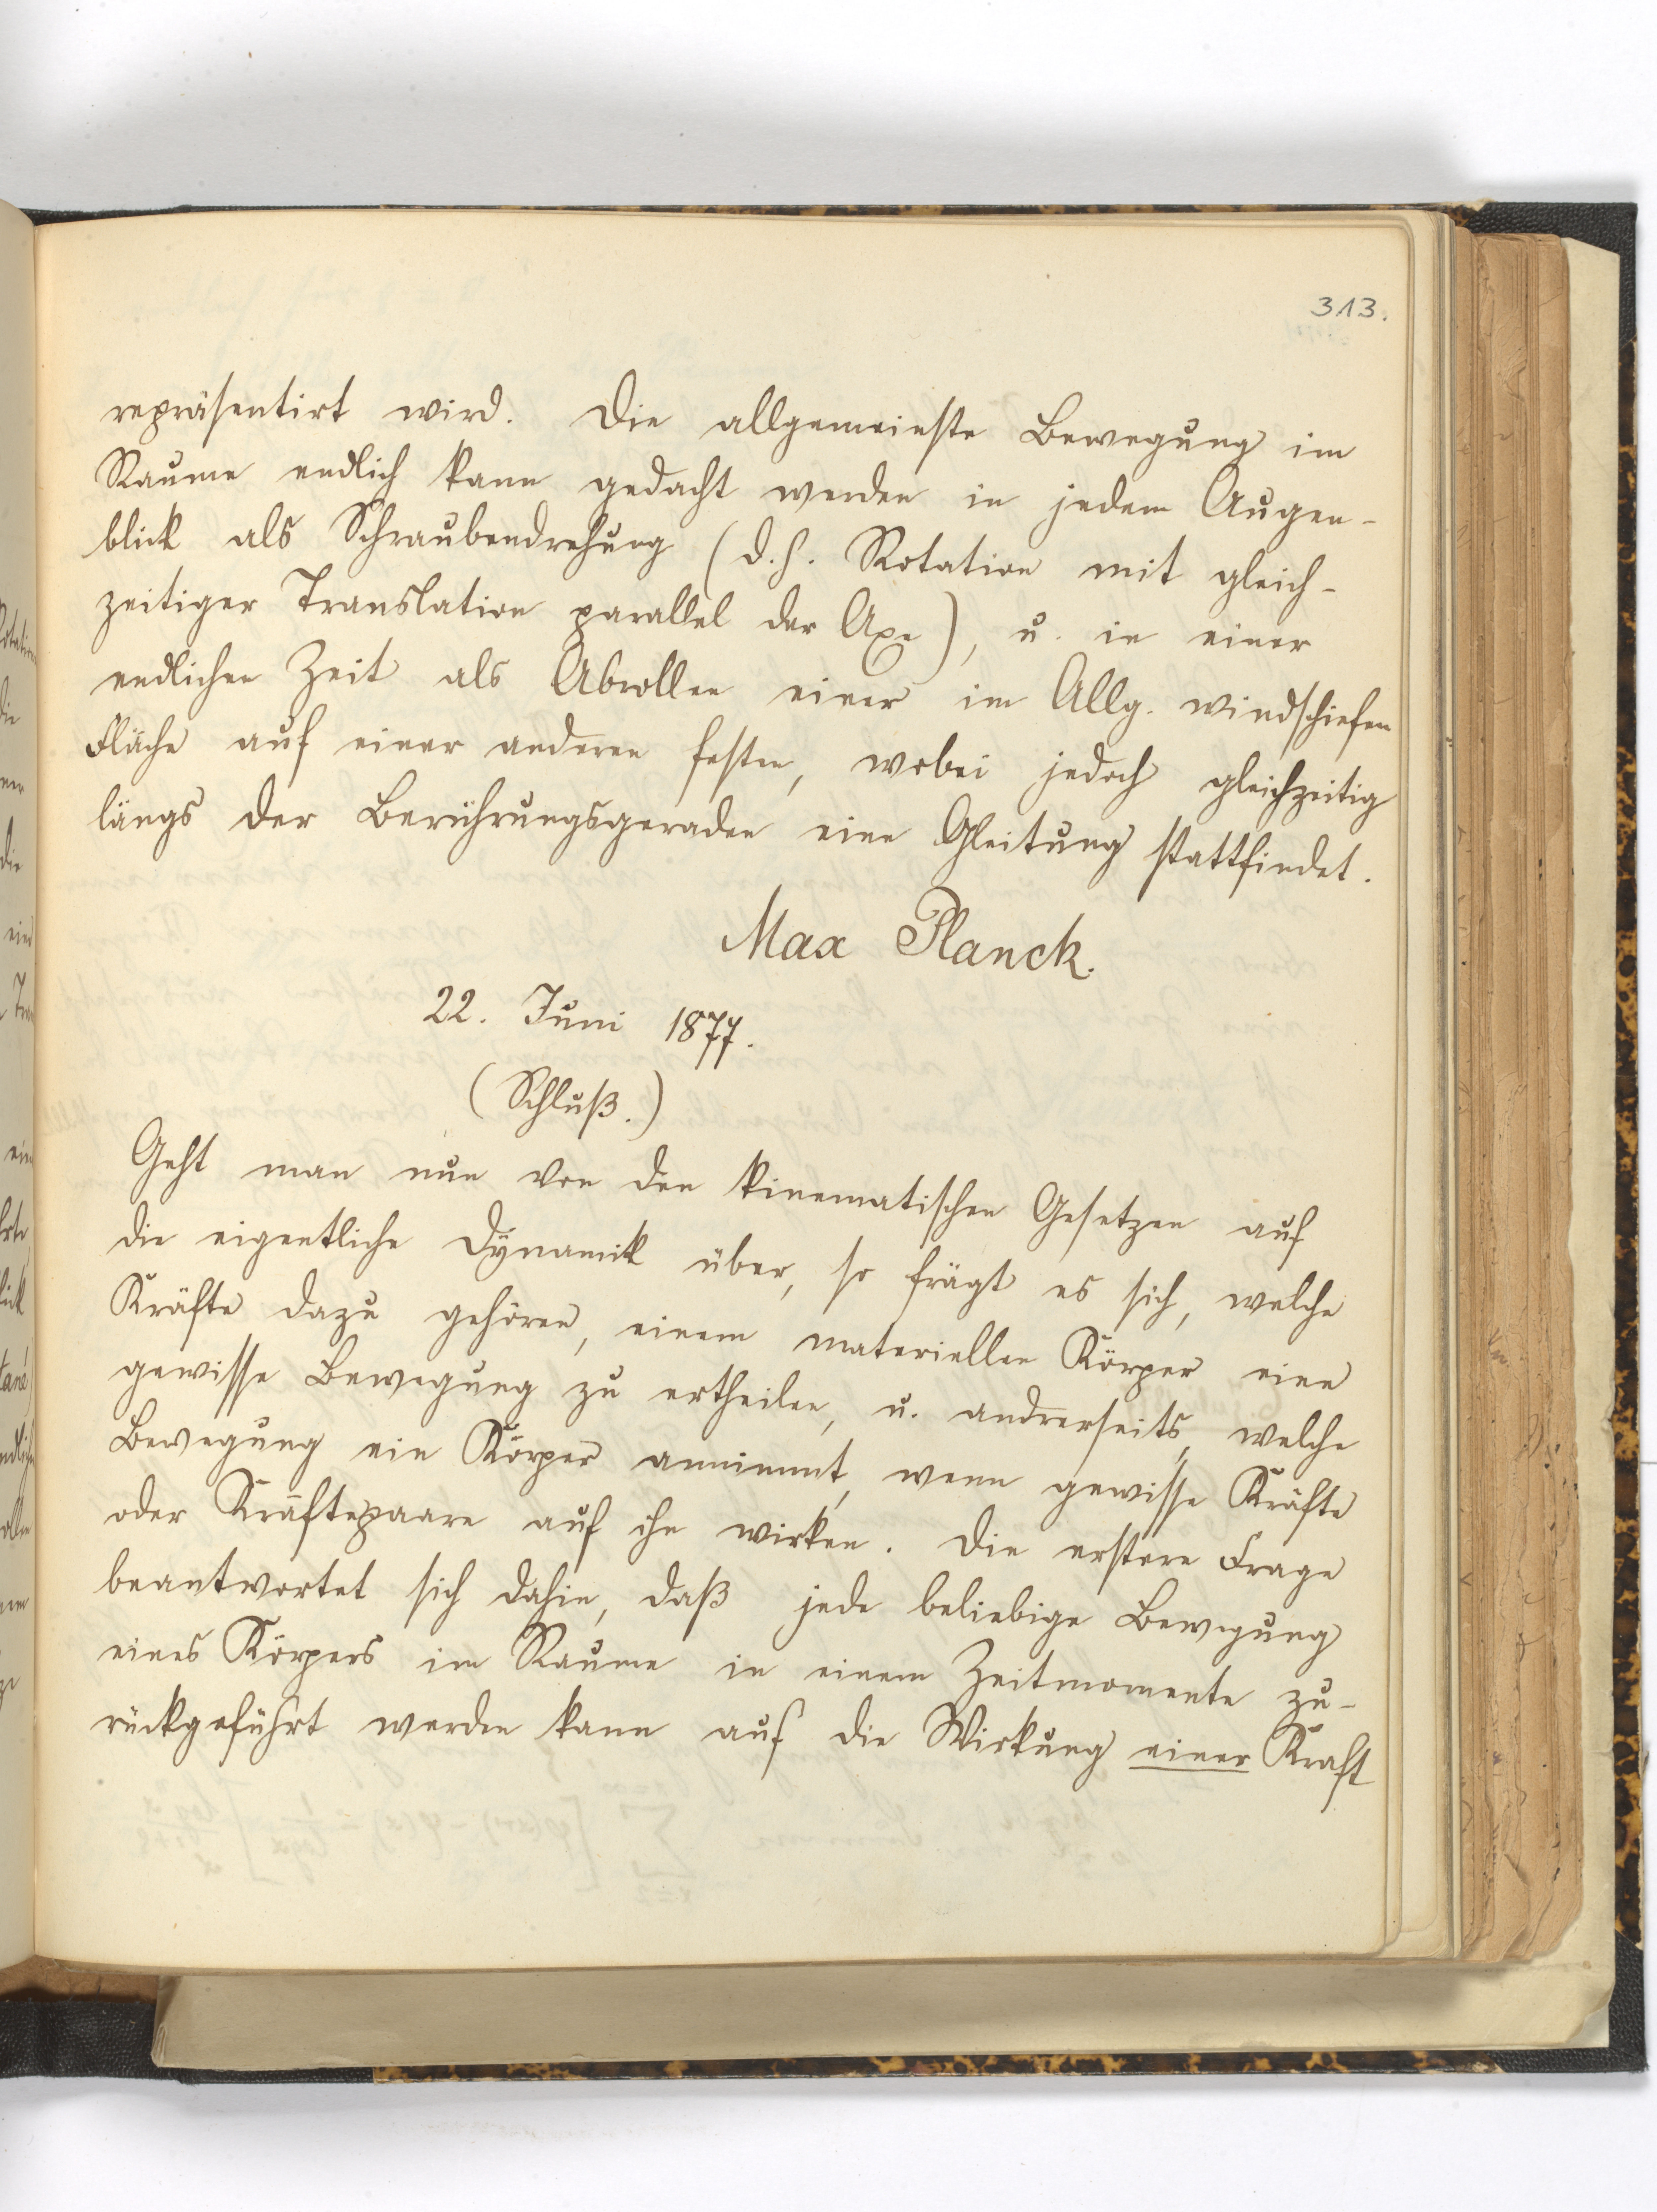 313.
repräsentirt wird. Die allgemeinste Bewegung im
Raume endlich kann gedacht werden in jedem Augen-
blick als Schraubendrehung (d.h. Rotation mit gleich-
zeitiger Translation parallel der Axe), u. in einer
endlichen Zeit als Abrollen einer im Allg. windschiefen
Fläche auf einer anderen festen, wobei jedoch gleichzeitig
längs der Berührungsgeraden eine Gleitung stattfindet.
Max Planck.
22. Juni 1877.
(Schluß.)
Geht man nun von den kinematischen Gesetzen auf
die eigentliche Dynamik über, so frägt es sich, welche
Kräfte dazu gehören, einem materiellen Körper eine
gewisse Bewegung zu ertheilen, u. andrerseits, welche
Bewegung ein Körper annimmt, wenn gewisse Kräfte
oder Kräftepaare auf ihn wirken. Die erstere Frage
beantwortet sich dahin, daß jede beliebige Bewegung
eines Körpers im Raume in einem Zeitmomente zu-
rückgeführt werden kann auf die Wirkung einer Kraft